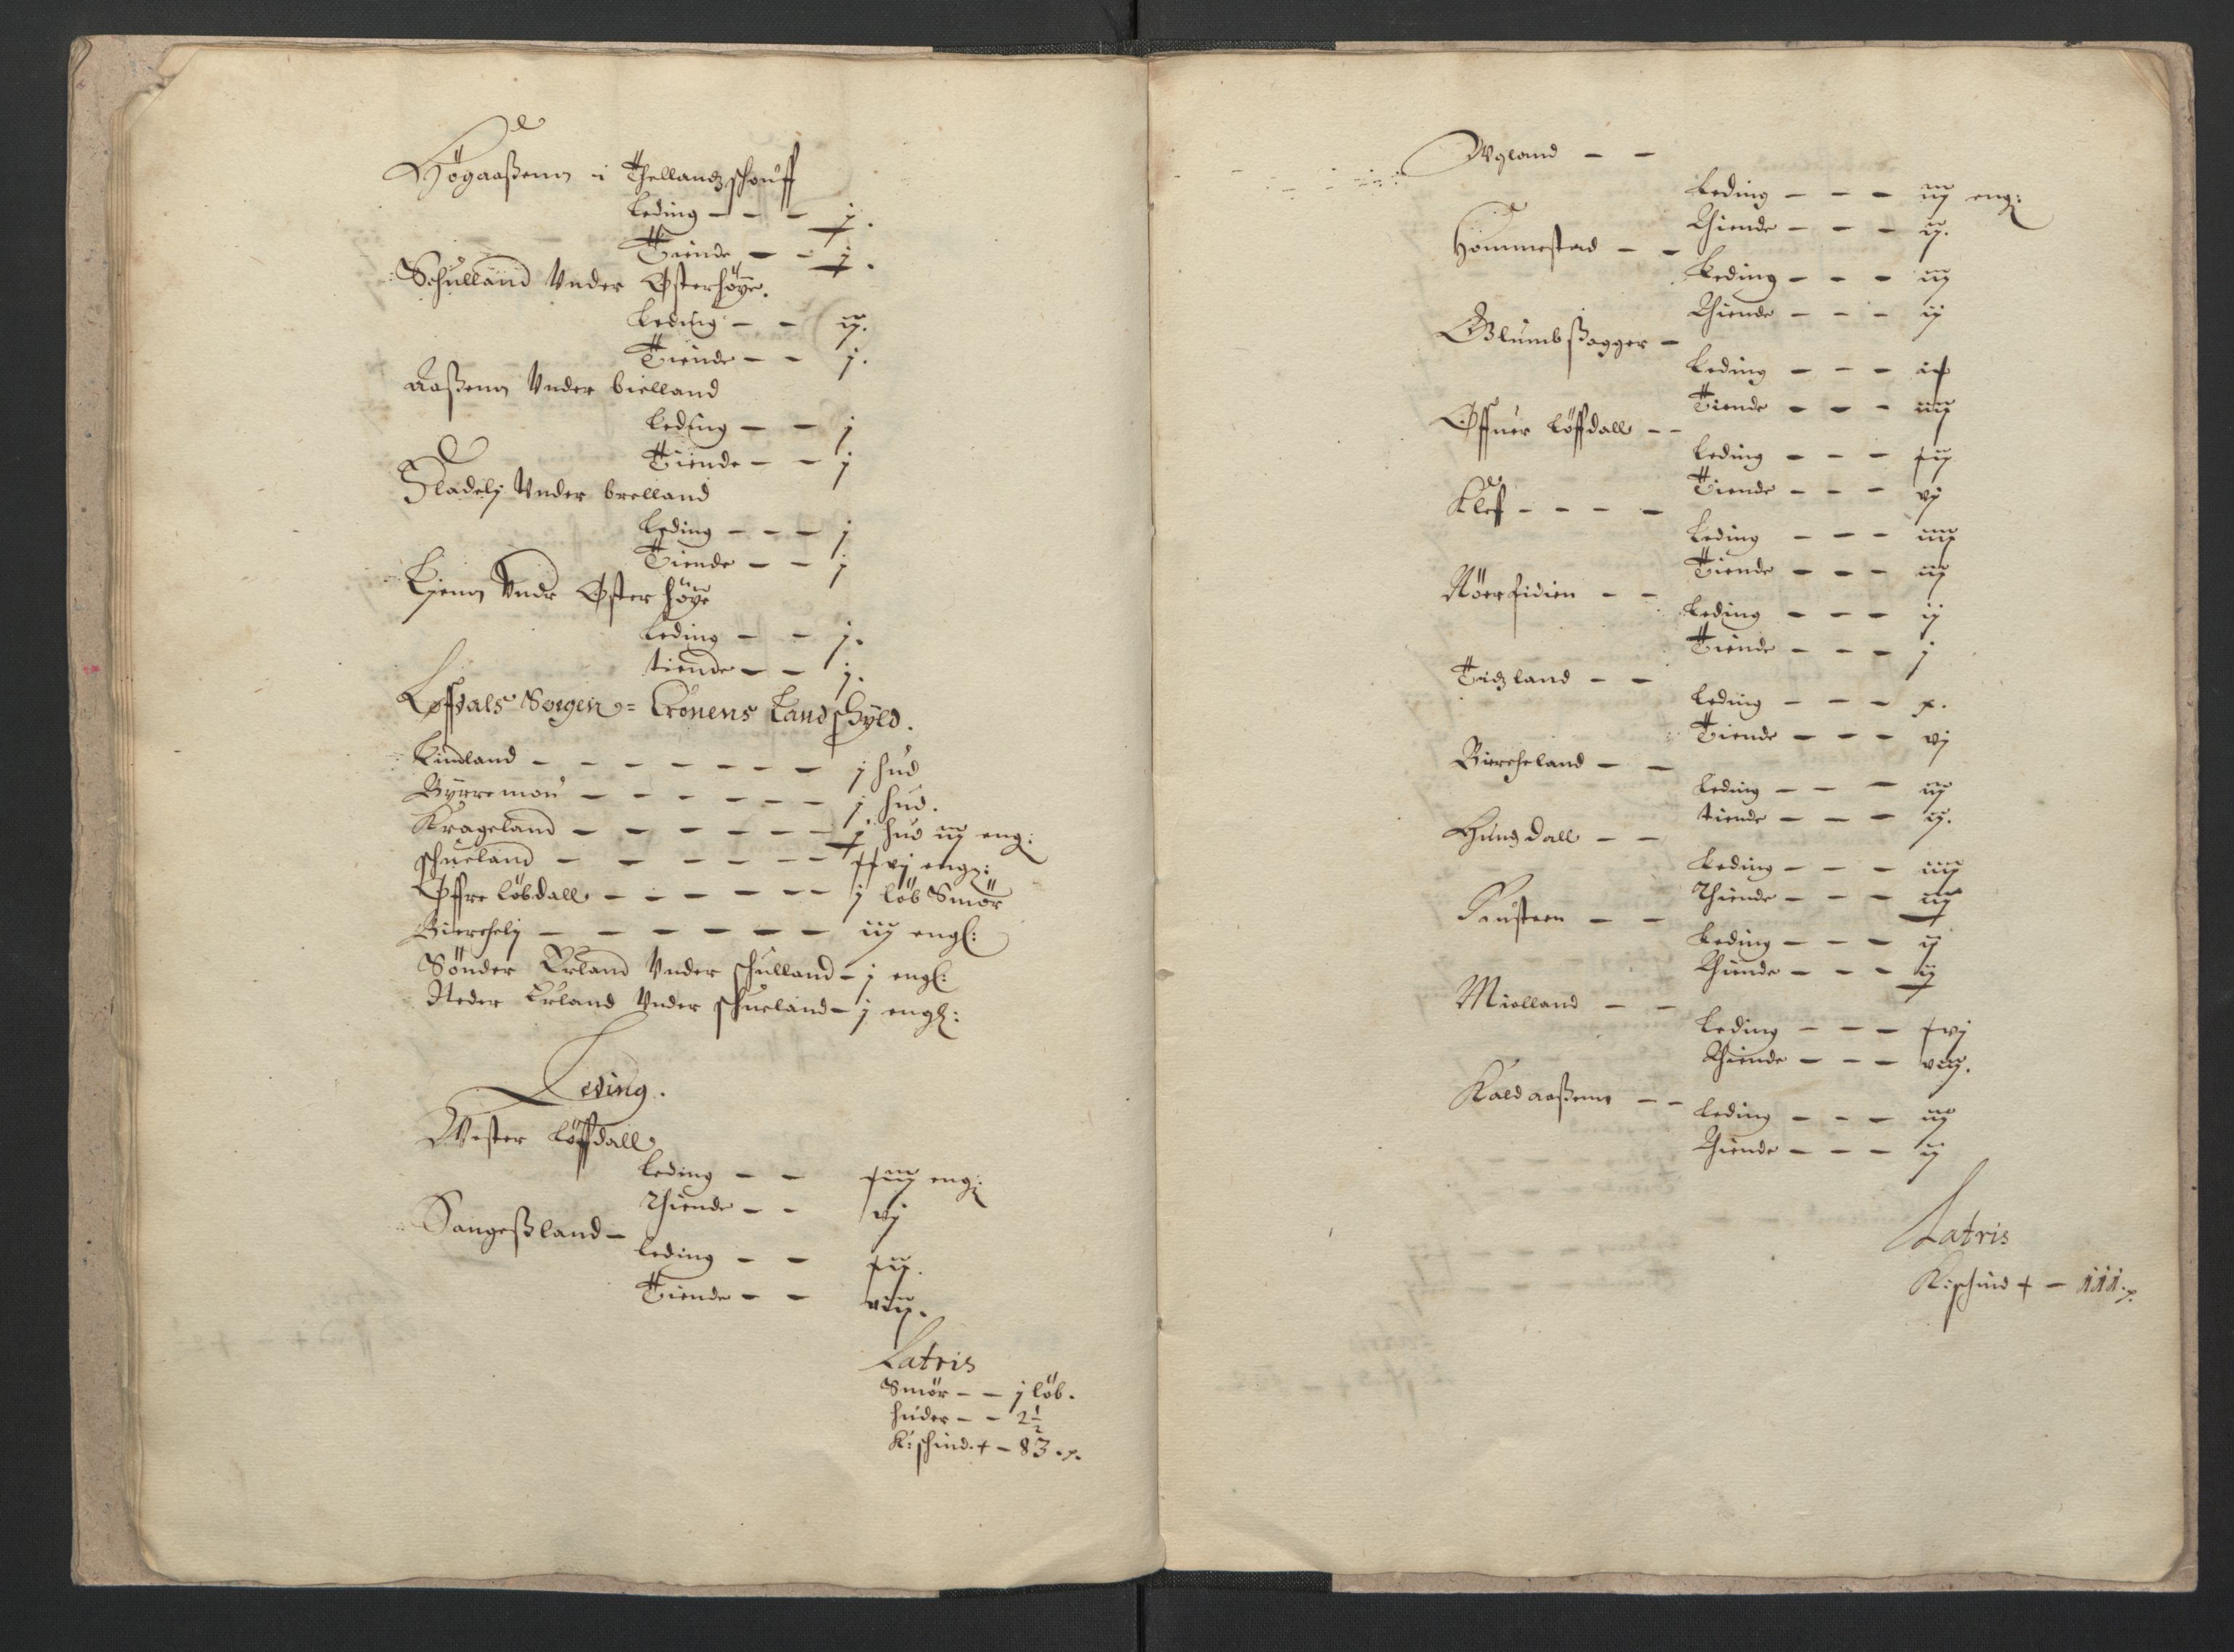 Högaaßenn i Thellandz schouff
Leding - - - j.
Tiende - - j.
Schulland Vnder Østerhøye.
Leding - - ij.
Tiende - - j.
Aaßenn Vnder bielland
Leding - - j
Tiende - - j
Fladelj Vnder brelland
Leding - - - j
Tiende - - j
Lienn Vndr Øster höye
Leding - - j.
tiende - - j.
Løffdals Sogen = Cronens Landschyld.
Lindland - - - - - - - j hud
Byrremou - - - - - - j hud.
Krageland - - - - - - j hud iij eng:
schueland - - - - - - xxvj eng:
Øffre löbdall - - - - - - j löb Smör
Bierchelj - - - - - - iij engl:
Sönder Erland Vnder schulland - j engl:
Neder Erland Vnder schueland - j engl:
Leding.
Wester Löffdall
Leding - - xiij eng:
Thiende - - vj
Sangeßland -
Leding - - xij.
Tiende - - viij.
Latris
Smör - - j löb.
huder - - 2½
K: schind + - 83.
Wgland - -
Leding - - - iij eng:
Thiende - - - ij.
Hommestad - -
Leding - - - iij
Thiende - - - ij
Glumbßagger -
Leding - - - ix
Tiende - - - iiij
Øffuer Löffdall - -
Leding - - - xij
Tiende - - - vj
Klef - - - -
Leding - - - iiij
Tiende - - - iij
Nöer fidien - -
Leding - - - ij
Tiende - - - j
Tidzland - -
Leding - - - x.
Tiende - - - vj
Biercheland - -
Leding - - - iij
tiende - - - ij.
Hungdall - -
Leding - - - iiij
Thiende - - - iij
Fousteen - -
Leding - - - ij
Thiende - - - ij
Miolland - -
Leding - - - xvj
Thiende - - - viij.
Kaldaaßenn - -
Leding - - - iij
Thiende - - - ij
Latris
K: schind + - 111.